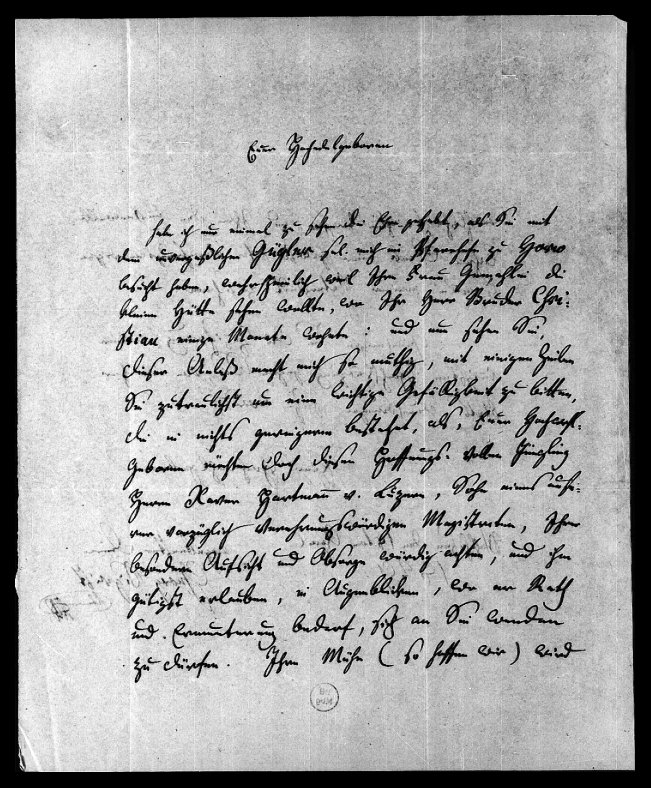 Euer Hochedelgeboren
habe ich nur einmal zu sehen die Ehre gehabt, als Sie mit
dem unvergeßlichen Gügler sel. mich in zu
besucht haben, wahrscheinlich weil Ihre Frau Gemahlin die
kleine Hütte sehen wollte, wo Ihr Herr Bruder Chri-
stian einige Monate wohnte: und nun sehen Sie,
dieser Anlaß macht mich so muthig, mit einigen Zeilen
Sie zutraulichst um eine wichtige Gefälligkeit zu bitten,
die in nichts geringerm besteht, als, Euer
geboren möchten doch diesen Hoffnungs-vollen Jüngling
Herrn Xaver Hartmann v. Luzern, Sohn eines unse-
rer vorzüglich Verehrungswürdigen Magistraten, Ihrer
besondern Aufsicht und Obsorge würdig achten, und ihm
gütigst erlauben, in Augenblicken, wo er Rath
und Ermunterung bedarf, sich an Sie wenden
zu dürfen. Ihre Mühe (so hoffen wir) wird